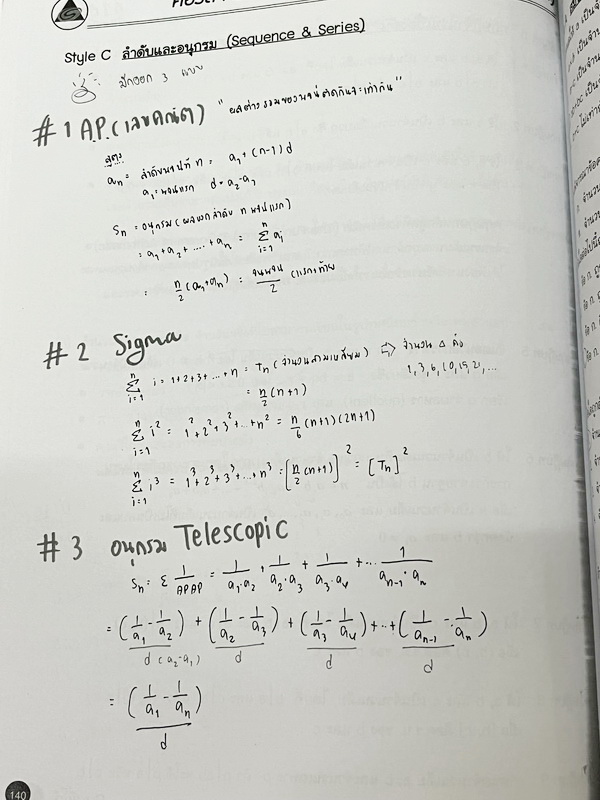 Style C ลำดับและอนุกรม (Sequence & Series)
มักออก 3 แบบ
#1 A.P. (เลขคณิต) "ผลต่างของพจน์ติดกันจะเท่ากัน"
สูตร
aₙ = ลำดับพจน์ที่ n = a₁ + (n-1) d
a₁ = พจน์แรก d = a₂-a₁
Sₙ = อนุกรม (ผลบวกลำดับ n พจน์แรก)
= a₁ + a₂ + .... + aₙ = Σ_{i=1}^{n} aᵢ
= n/2 (a₁+aₙ) = จน.พจน์/2 (แรก+ท้าย
#2 Sigma
Σ_{i=1}^{n} i = 1+2+3+...+n = Tₙ (จำนวนสามเหลี่ยม) ⇨ จำนวน Δ คือ
= n/2 (n+1) 1, 3, 6, 10, 15, 21, ...
Σ_{i=1}^{n} i² = 1²+2²+3²+...+n² = n/6 (n+1)(2n+1)
Σ_{i=1}^{n} i³ = 1³+2³+3³+...+n³ = [n/2 (n+1)]² = [Tₙ]²
#3 อนุกรม Telescopic
Sₙ = Σ 1/APAP = 1/(a₁·a₂) + 1/(a₂·a₃) + 1/(a₃·a₄) + ... 1/(aₙ₋₁·aₙ)
= (1/a₁ - 1/a₂)/d (a₂-a₁) + (1/a₂ - 1/a₃)/d + (1/a₃ - 1/a₄)/d + ... + (1/aₙ₋₁ - 1/aₙ)/d
= (1/a₁ - 1/aₙ)/d
140